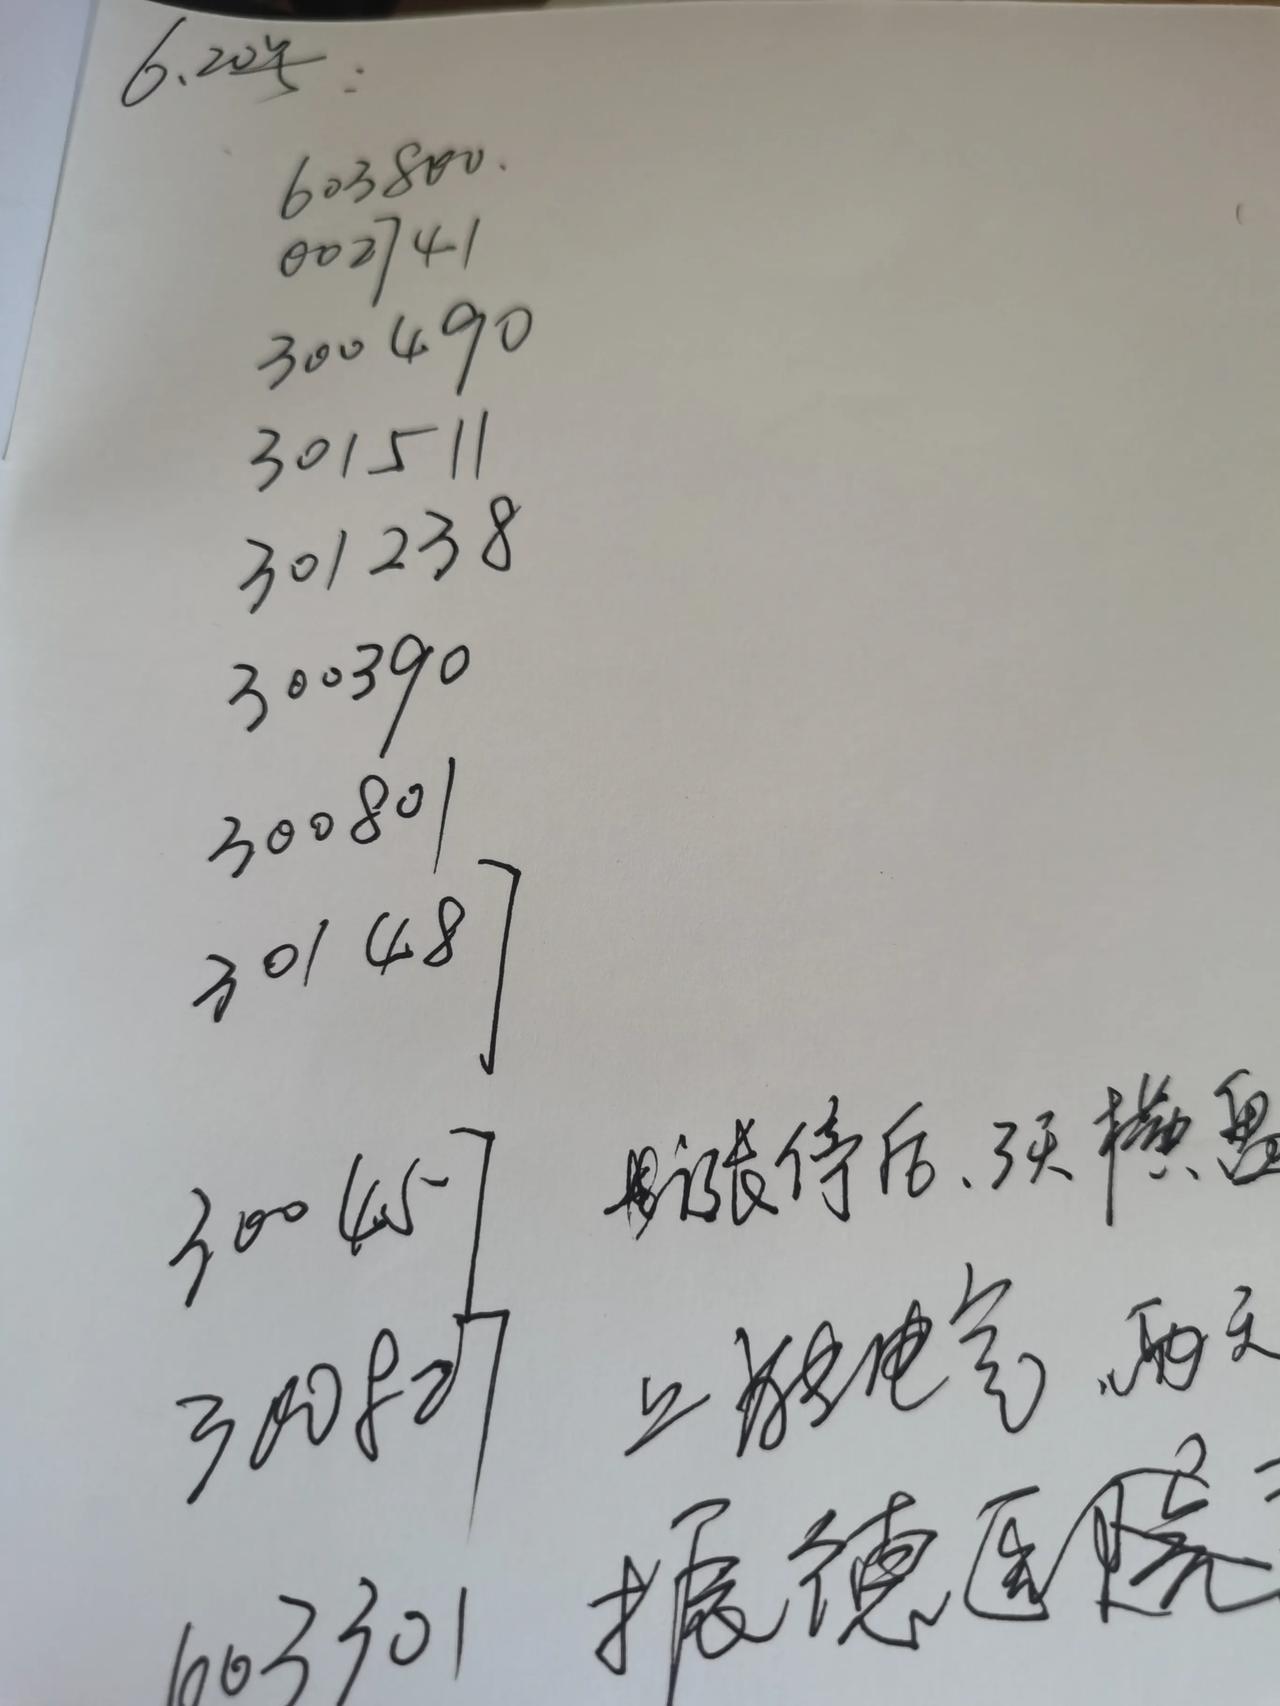 6.20号：
603800.
002741
300490
301511
301238
300390
300801
30148
30045 涨停后、3天横盘
300827 上能电气、两天
603301 振德医院